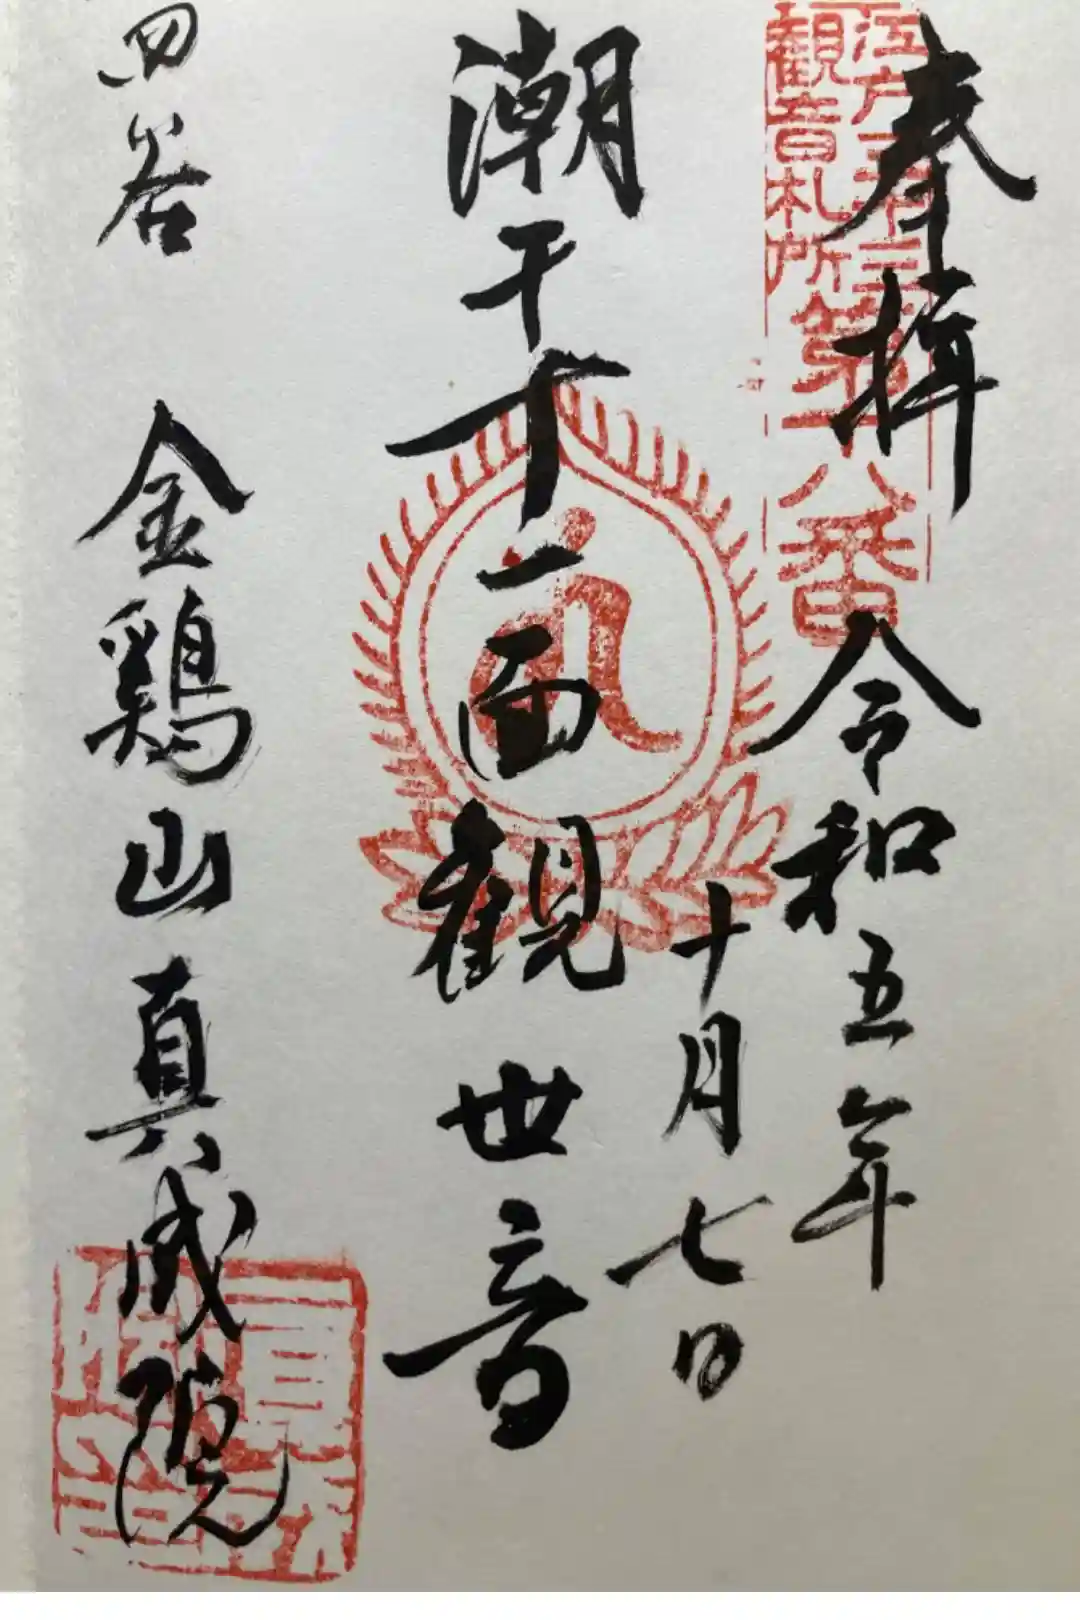 奉拝
江戸三十三
観音札所
第十八番
令和五年
十月七日
潮干十一面観世音
四谷 金鶏山真成院